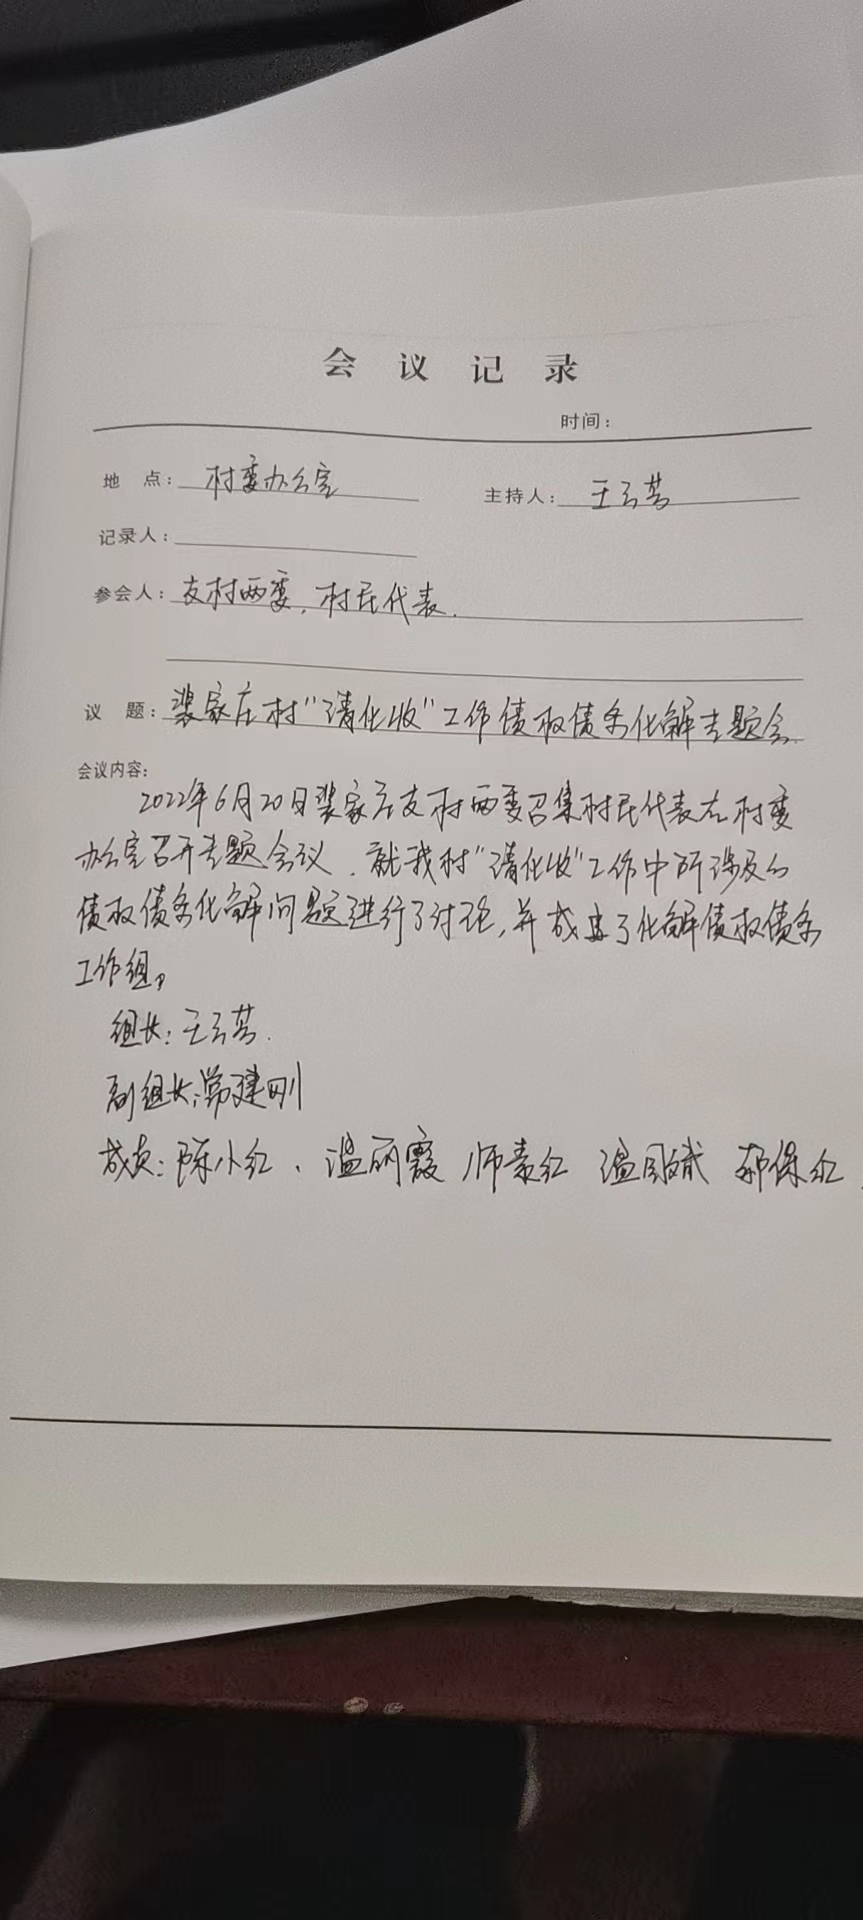 会议记录
时间:
地 点: 村委办公室 主持人: 王云芳
记录人:
参会人: 支村两委, 村民代表.
议 题: 裴家庄村"清化收"工作债权债务化解专题会.
会议内容:
2022年6月20日裴家庄支村两委召集村民代表在村委
办公室召开专题会议, 就我村"清化收"工作中所涉及的
债权债务化解问题进行了讨论, 并成立了化解债权债务
工作组,
组长: 王云芳.
副组长: 常建刚
成员: 陈小红、温丽霞 师素红 温国斌 郭保红.